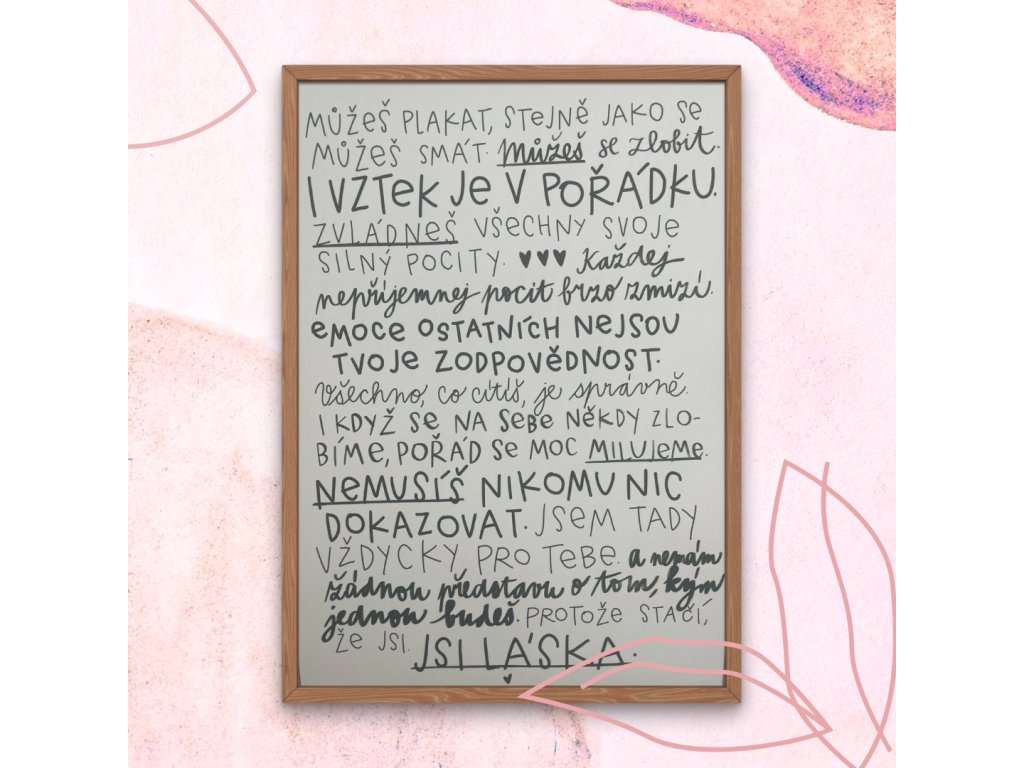 MŮŽEŠ PLAKAT, STEJNĚ JAKO SE
MŮŽEŠ SMÁT. Můžeš se zlobit.
I VZTEK JE V POŘÁDKU.
ZVLÁDNEŠ VŠECHNY SVOJE
SILNÝ POCITY. ♥♥♥ Každej
nepříjemnej pocit brzo zmizí.
EMOCE OSTATNÍCH NEJSOU
TVOJE ZODPOVĚDNOST.
Všechno, co cítíš, je správně.
I KDYŽ SE NA SEBE NĚKDY ZLO-
BÍME, POŘÁD SE MOC MILUJEME.
NEMUSÍŠ NIKOMU NIC
DOKAZOVAT. JSEM TADY
VŽDYCKY PRO TEBE. a nemám
žádnou představu o tom, kým
jednou budeš. PROTOŽE STAČÍ,
ŽE JSI. JSI LÁSKA.